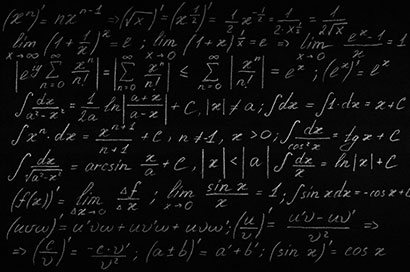 (xⁿ)' = nxⁿ⁻¹ ⇒ (√x)' = (x^(1/2))' = 1/2 x^(-1/2) = 1/(2·x^(1/2)) = 1/(2√x)
lim x→∞ (1 + 1/x)^x = e ; lim x→0 (1+x)^(1/x) = e ⇒ lim x→0 (eˣ-1)/x = 1
= |∑ n=0 ∞ xⁿ/n!| ≤ ∑ n=0 ∞ |xⁿ/n!| = eˣ ; (eˣ)' = eˣ
∫ dx/(a²-x²) = 1/2a ln|(a+x)/(a-x)| + C, |x| ≠ a ; ∫dx = ∫1·dx = x+C
∫xⁿ·dx = xⁿ⁺¹/(n+1) + C, n ≠ -1, x > 0 ; ∫ dx/cos²x = tgx + C
∫ dx/√(a²-x²) = arcsin x/a + C, |x| < |a| ∫ dx/x = ln|x| + C
(f(x))' = lim Δx→0 Δf/Δx ; lim x→0 sin x/x = 1 ; ∫sin x dx = -cos x + C
(uvw)' = u'vw + uv'w + uvw' ; (u/v)' = (u'v - uv')/v² ⇒
⇒ (c/v)' = -c·v'/v² ; (a±b)' = a' + b' ; (sin x)' = cos x